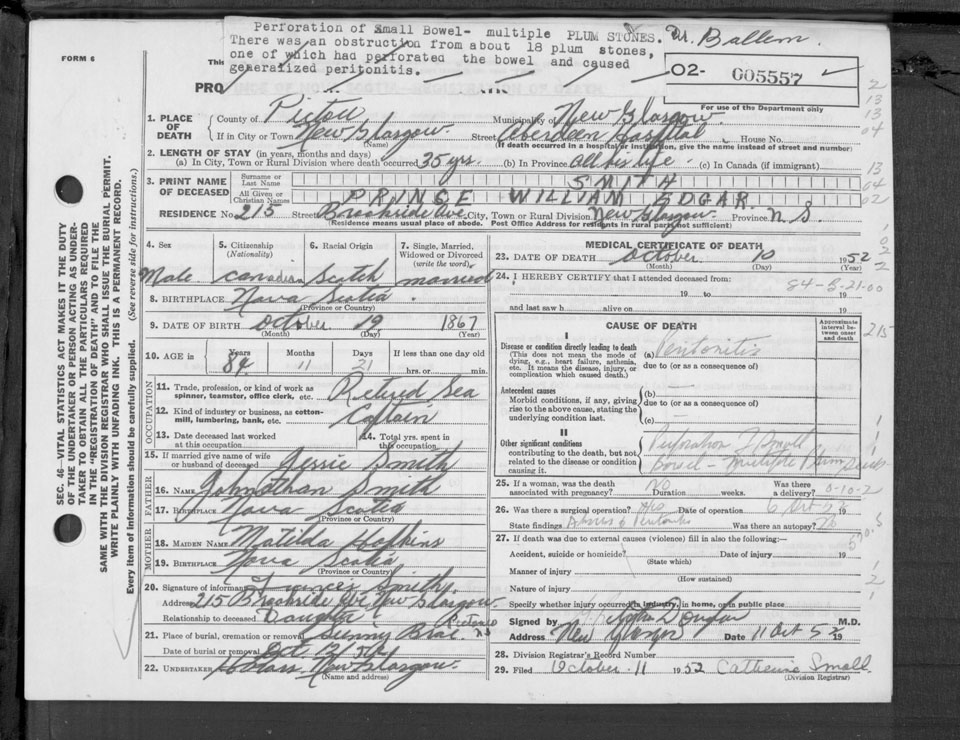 Perforation of Small Bowel- multiple PLUM STONES.
There was an obstruction from about 18 plum stones,
one of which had perforated the bowel and caused
generalized peritonitis.
Ballem.
FORM 6
This
PRO
02- 005557
For use of the Department only
1. PLACE OF DEATH
County of Pictou Municipality of New Glasgow
If in City or Town New Glasgow Street Aberdeen Hospital House No.
(Name) (If death occurred in a hospital or institution, give its name instead of street and number)
2. LENGTH OF STAY (in years, months and days)
(a) In City, Town or Rural Division where death occurred 35 yrs. (b) In Province all his life (c) In Canada (if immigrant)
3. PRINT NAME OF DECEASED
Surname or Last Name SMITH
All Given or Christian Names PRINCE WILLIAM EDGAR.
RESIDENCE No. 215 Street Brookside Ave City, Town or Rural Division New Glasgow Province N.S.
(Residence means usual place of abode. Post Office Address for residents in rural parts not sufficient)
SEC. 46—VITAL STATISTICS ACT MAKES IT THE DUTY
OF THE UNDERTAKER OR PERSON ACTING AS UNDER-
TAKER TO OBTAIN ALL THE PARTICULARS REQUIRED
IN THE "REGISTRATION OF DEATH" AND TO FILE THE
SAME WITH THE DIVISION REGISTRAR WHO SHALL ISSUE THE BURIAL PERMIT.
WRITE PLAINLY WITH UNFADING INK. THIS IS A PERMANENT RECORD.
Every item of information should be carefully supplied. (See reverse side for instructions.)
4. Sex Male
5. Citizenship (Nationality) Canadian
6. Racial Origin Scotch
7. Single, Married, Widowed or Divorced (write the word) married
8. BIRTHPLACE Nova Scotia
(Province or Country)
9. DATE OF BIRTH October 19 1867
(Month) (Day) (Year)
10. AGE in Years Months Days If less than one day
84 11 21 hrs. or min.
OCCUPATION
11. Trade, profession, or kind of work as spinner, teamster, office clerk, etc. Retired Sea
12. Kind of industry or business, as cotton-mill, lumbering, bank, etc. Captain
13. Date deceased last worked at this occupation
14. Total yrs. spent in this occupation
15. If married give name of wife or husband of deceased Jessie Smith
FATHER
16. NAME Johnathan Smith
17. BIRTHPLACE Nova Scotia
(Province or Country)
MOTHER
18. MAIDEN NAME Matilda Hopkins
19. BIRTHPLACE Nova Scotia
(Province or Country)
20. Signature of informant Smith
Address 215 Brookside Ave New Glasgow
Relationship to deceased Daughter
21. Place of burial, cremation or removal Sunny Brae
Date of burial or removal Oct 12/52
22. UNDERTAKER New Glasgow.
(Name and address)
MEDICAL CERTIFICATE OF DEATH
23. DATE OF DEATH October 10 1952
(Month) (Day) (Year)
24. I HEREBY CERTIFY that I attended deceased from
19 to 19
84-B-21-00
and last saw h alive on 19
CAUSE OF DEATH
Approximate interval between onset and death
I
Disease or condition directly leading to death
(This does not mean the mode of dying, e.g., heart failure, asthenia, etc. It means the disease, injury, or complication which caused death.)
(a) Peritonitis
due to (or as a consequence of)
Antecedent causes
Morbid conditions, if any, giving rise to the above cause, stating the underlying condition last
(b)
due to (or as a consequence of)
(c)
II
Other significant conditions contributing to the death, but not related to the disease or condition causing it.
Perforation of Small
Bowel - multiple Plum Seeds
25. If a woman, was the death associated with pregnancy? No Duration weeks. Was there a delivery?
0-10-2
26. Was there a surgical operation? Date of operation 6 Oct 52
State findings Was there an autopsy? No
27. If death was due to external causes (violence) fill in also the following:
Accident, suicide or homicide? Date of injury 19
(State which)
Manner of injury
(How sustained)
Nature of injury
Specify whether injury occurred in industry, in home, or in public place
Signed by M.D.
Address New Glasgow Date 11 Oct 52 19
28. Division Registrar's Record Number
29. Filed October 11 1952 Catherine Small
(Division Registrar)